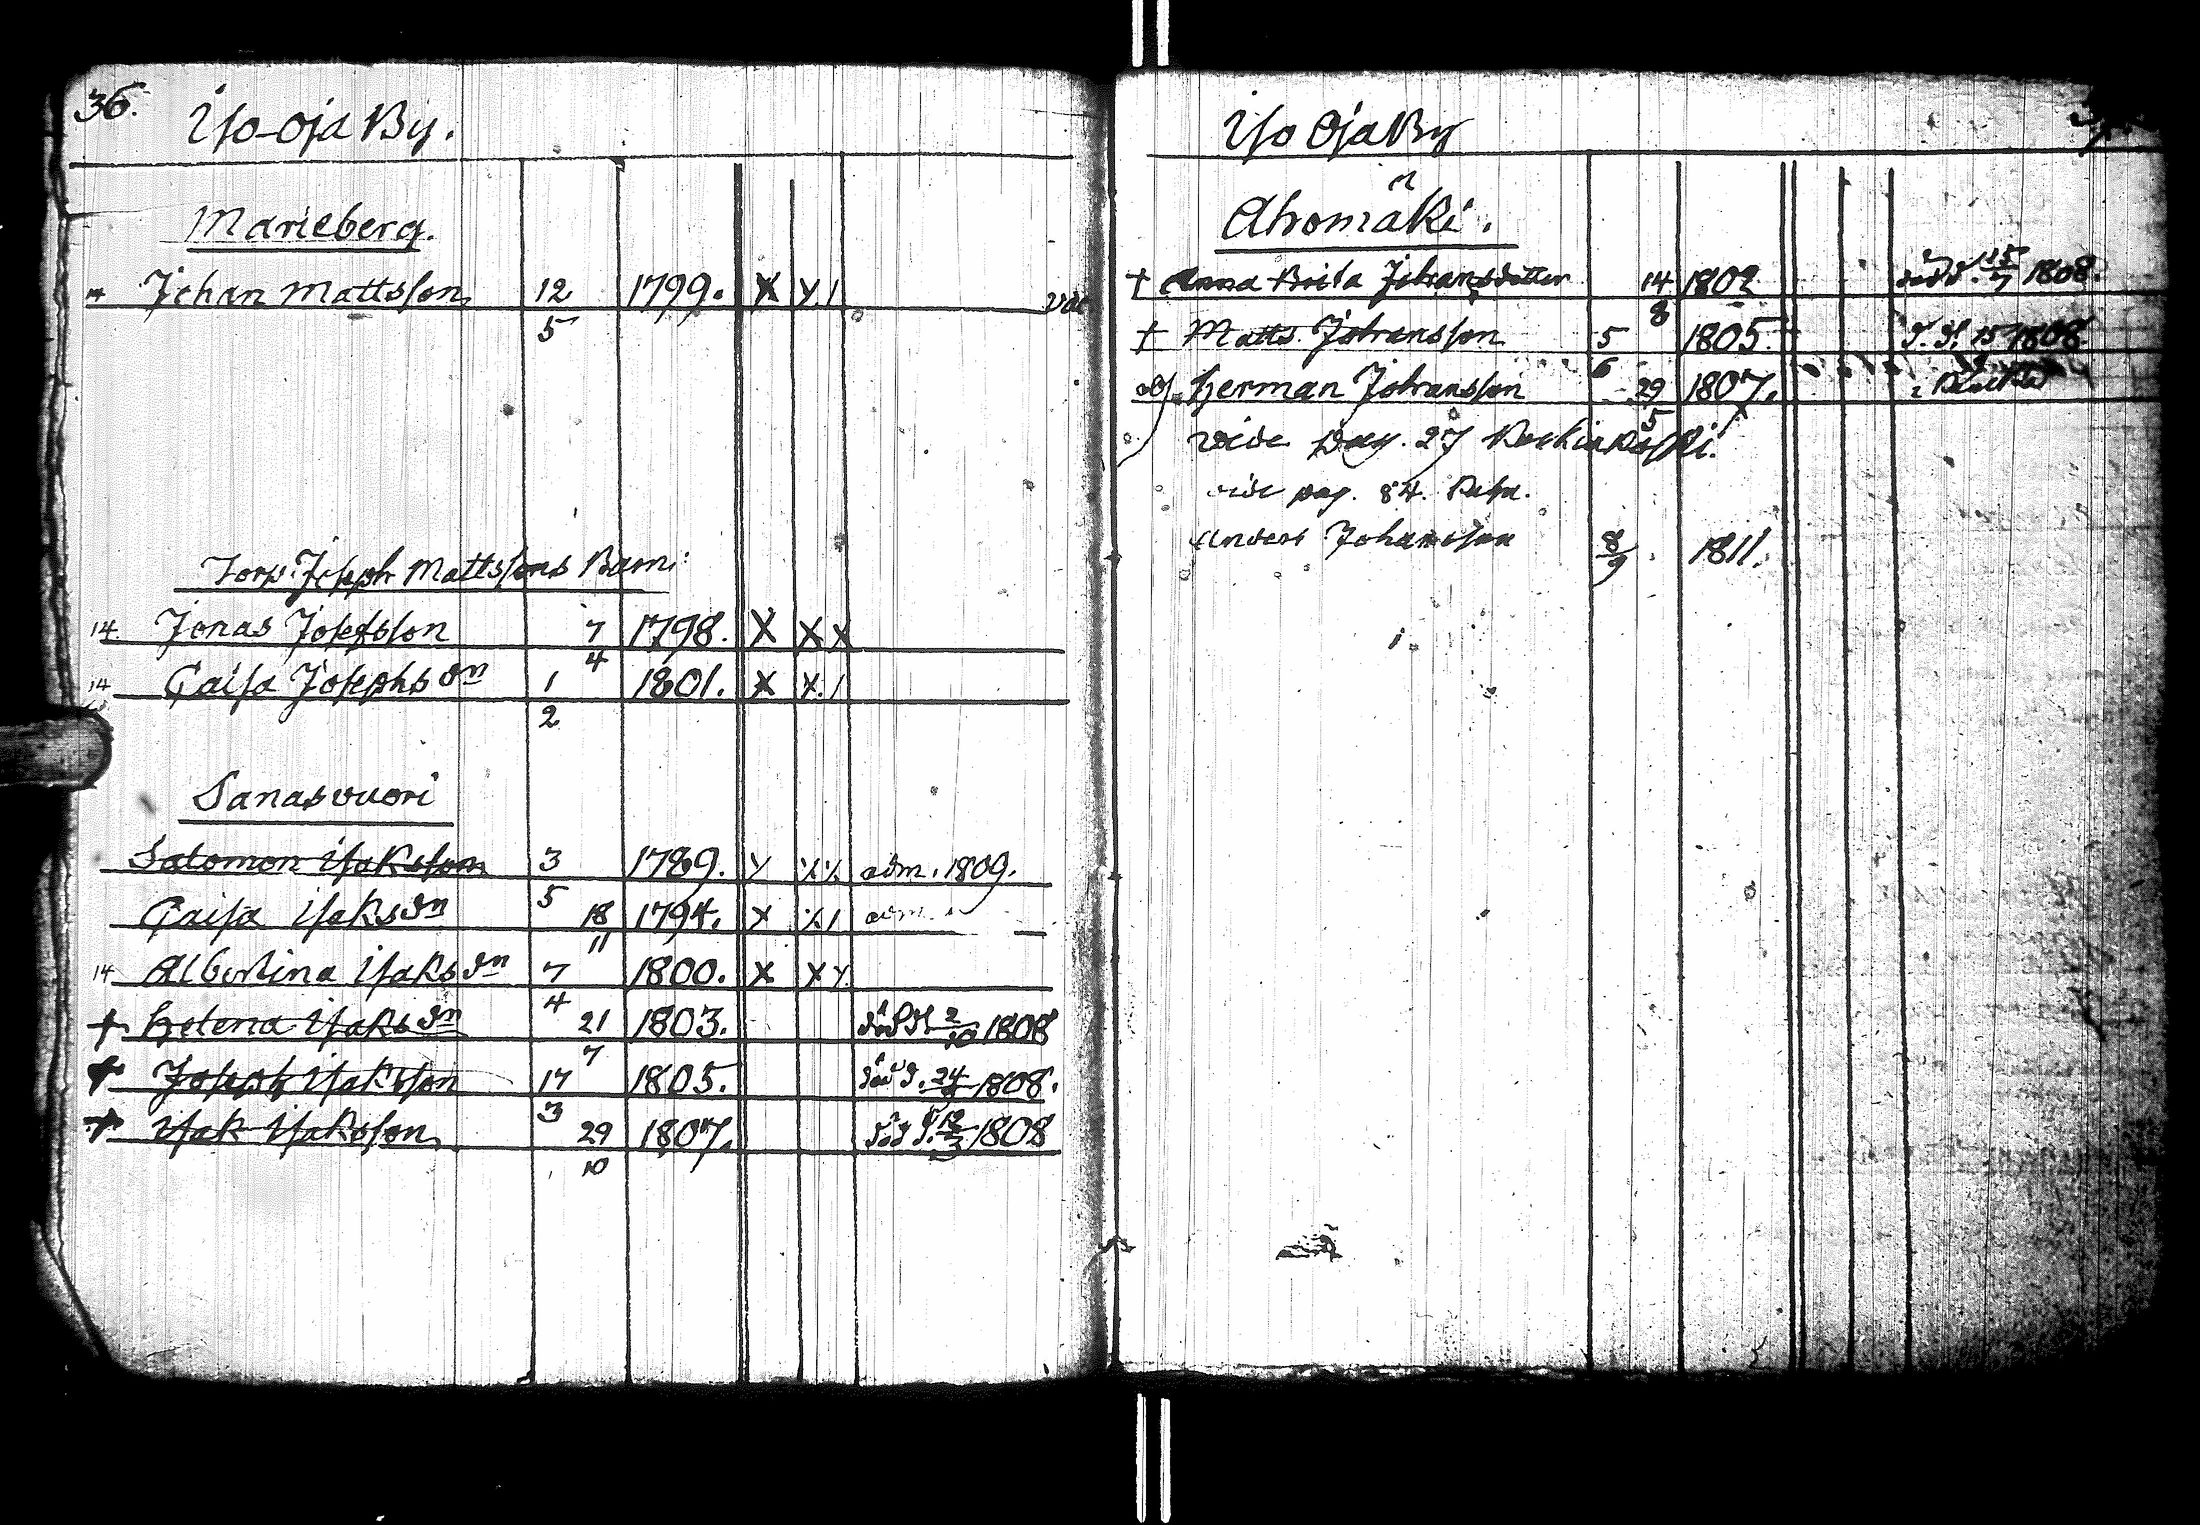 36.
Iso-oja By.
Marieberg.
Johan Mattsson 12 1799. X X 1
5
Torp. Joseph Mattssons Barn:
14. Jonas Josefsson 7 1798. X X X
4
14 Caisa Josephsdn 1 1801. X X. 1
2
Sanasvuori
Salomon Isaksson 3 1789. X X X adm. 1809.
5
Caisa Isaksdn 18 1794. X X 1 adm.
11
14 Albertina Isaksdn 7 1800. X X X
4
† Helena Isaksdn 21 1803. död d. 2/10 1808
7
† Joseph Isaksson 17 1805. död d. 24 1808.
3
† Isak Isaksson 29 1807. död d. 12/3 1808
10
Iso Oja By
Ahomäki.
† Anna Brita Johansdotter 14 1802 död d. 15/7 1808.
8
† Matts Johansson 5 1805. d. d. 15 1808
6
Herman Johansson 29 1807.
5
vide pag. 27
vide pag. 84.
Anders Johansson 8/9 1811.